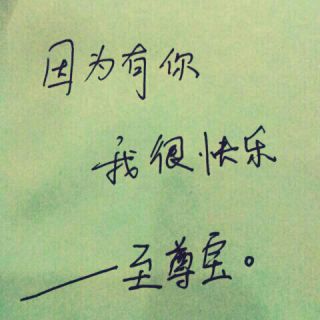 因为有你
我很快乐
——至尊宝。